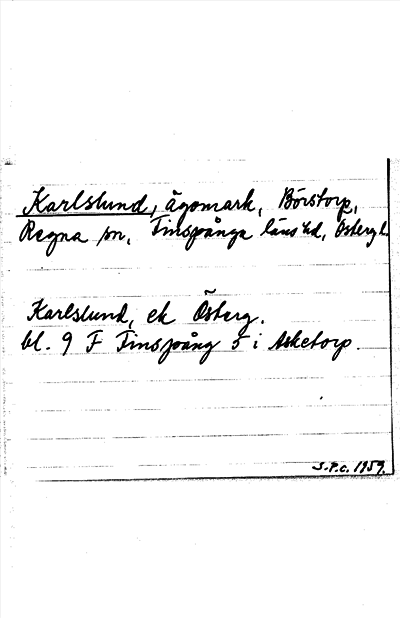 Karlslund, ägomark, Börstorp,
Regna sn, Finspånga läns hd, Österg l.
Karlslund, ek Österg.
bl. 9 F Finspång 5 i Asketorp.
S.P.C. 1959.